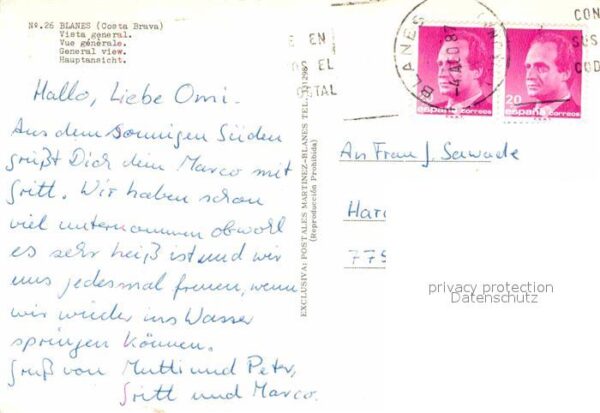 No.26 BLANES (Costa Brava)
Vista general.
Vue générale.
General view.
Hauptansicht.
Hallo, Liebe Omi.
Aus dem sonnigen Süden
grüßt Dich dein Marco mit
Gritt. Wir haben schon
viel unternommen obwohl
es sehr heiß ist und wir
uns jedesmal freuen, wenn
wir wieder ins Wasser
springen können.
Gruß von Mutti und Peter,
Gritt und Marco.
EXCLUSIVA: POSTALES MARTINEZ-BLANES TEL.
(Reproducción Prohibida)
EN
EL
TAL
BLANES
4 AGO 87
CON
SUS
COD
20
españa correos
españa correos
An Frau J. Sawade
Har
775
privacy protection
Datenschutz